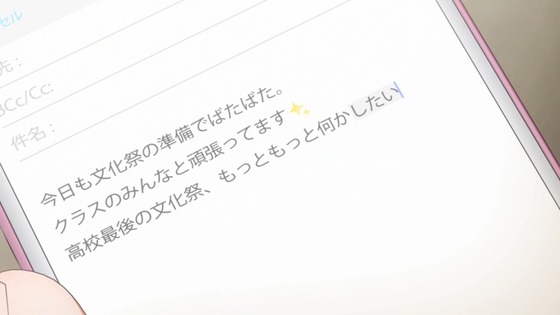 セル
先：
BCc/Cc:
件名：
今日も文化祭の準備でばたばた。
クラスのみんなと頑張ってます✨
高校最後の文化祭、もっともっと何かしたい